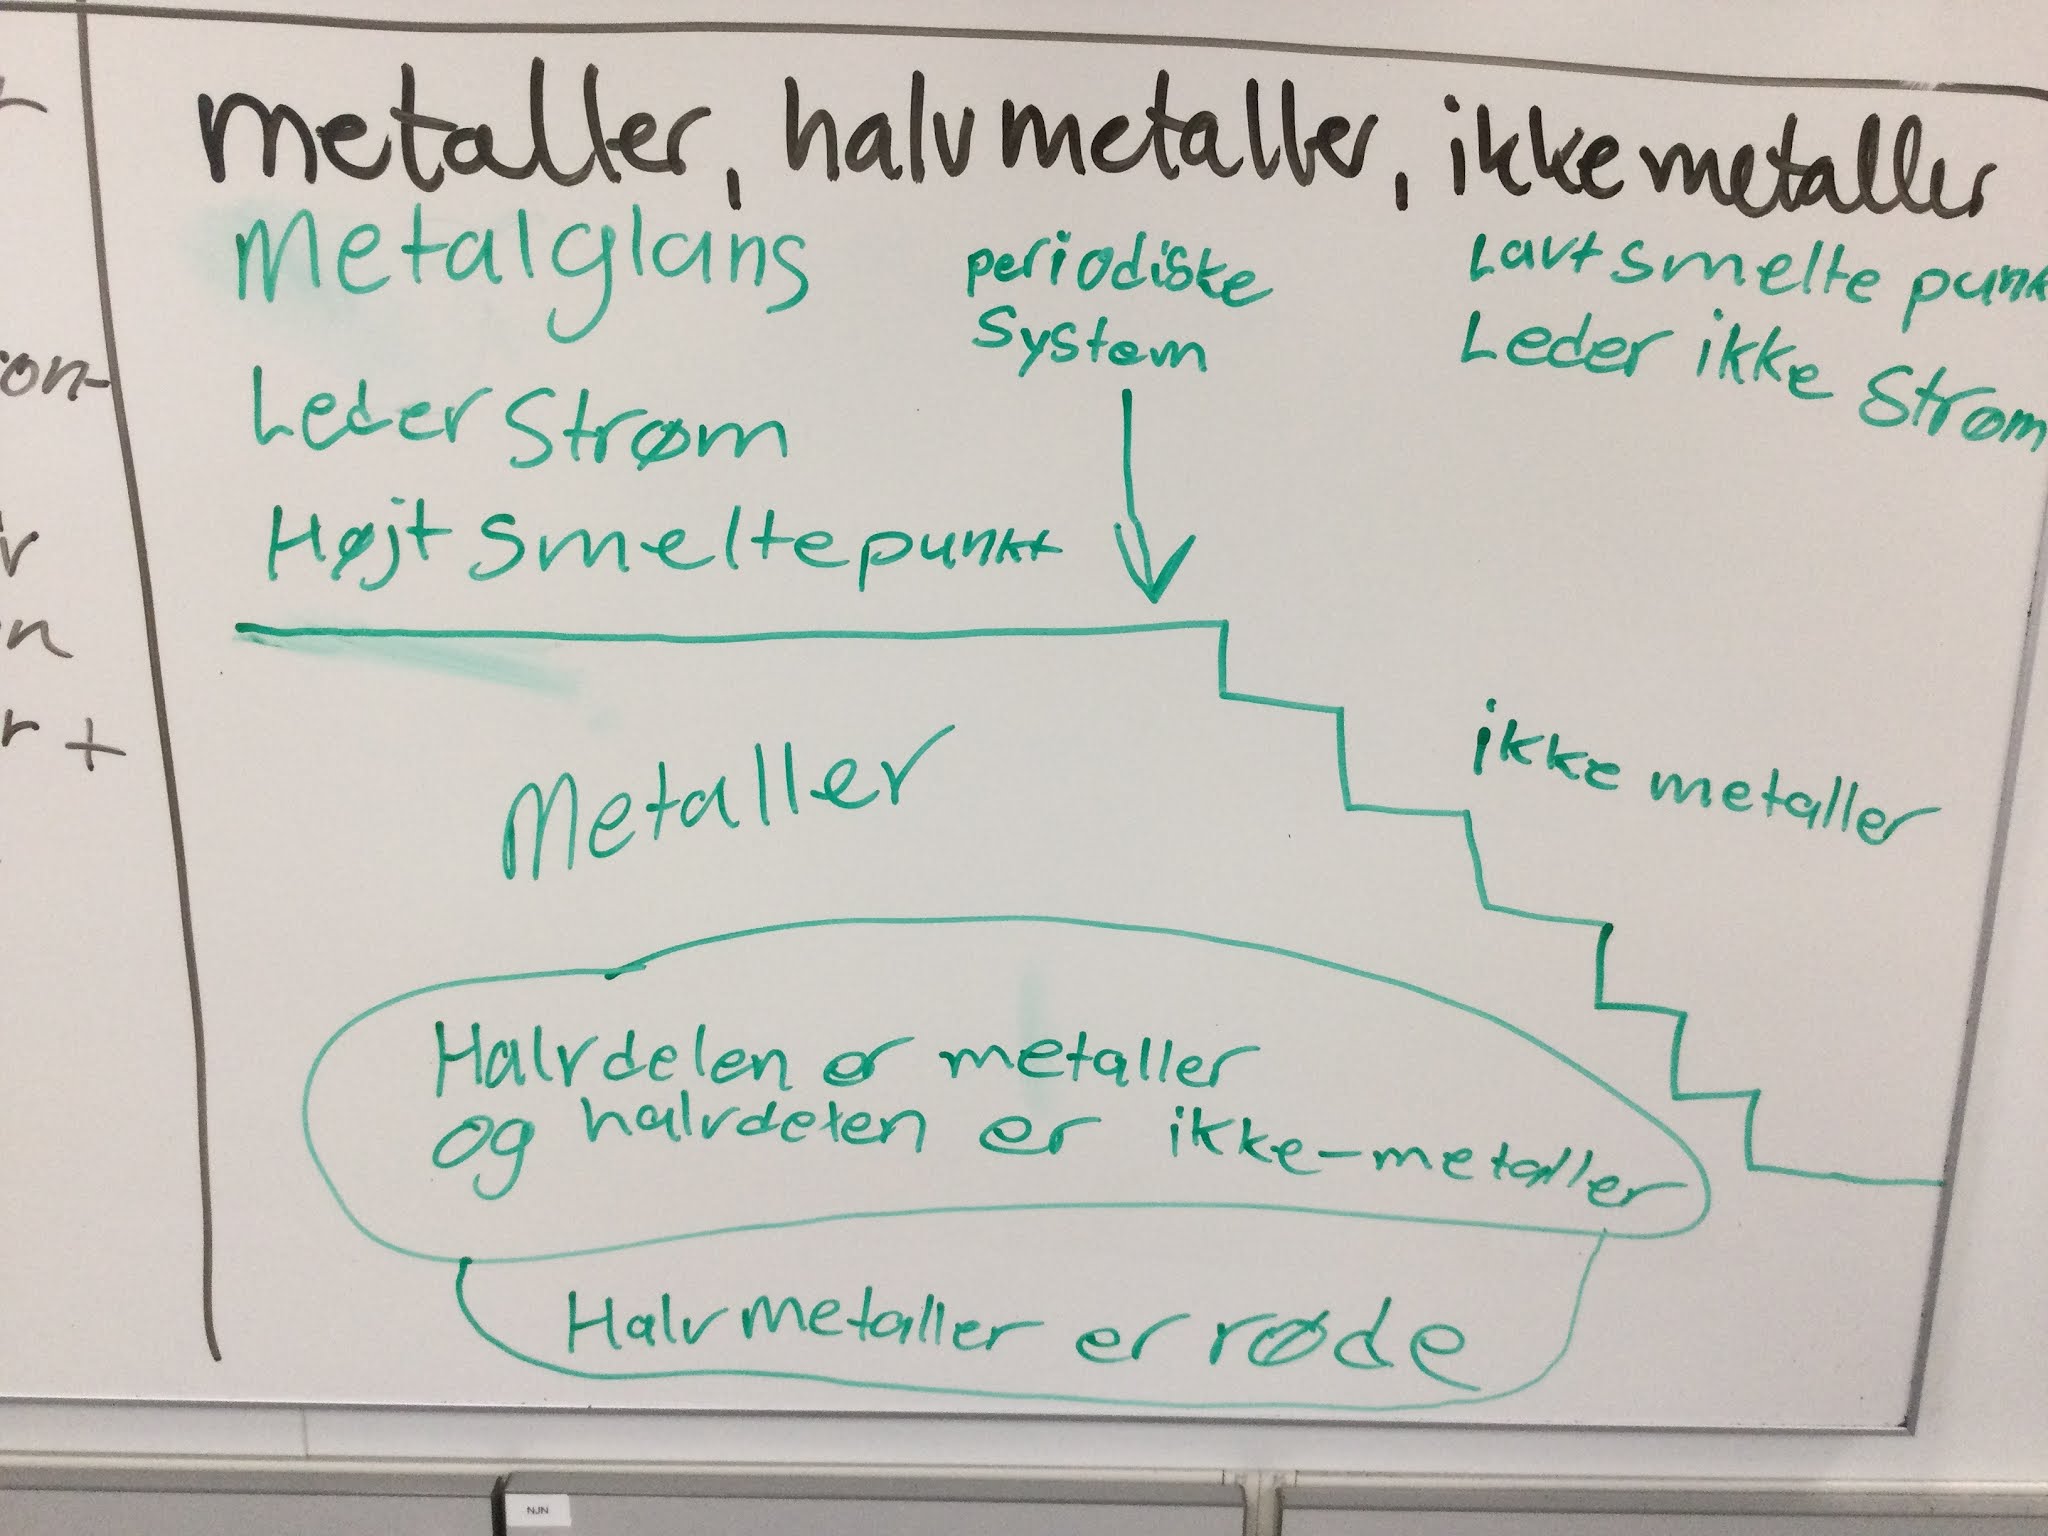 metaller, halvmetaller, ikkemetaller
Metalglans
Leder Strøm
Højt smeltepunkt
periodiske
System
Lavt smelte punk
Leder ikke Strøm
Metaller
ikke metaller
Halvdelen er metaller
og halvdelen er ikke-metaller
Halvmetaller er røde
on-
r
n
r +
NJN